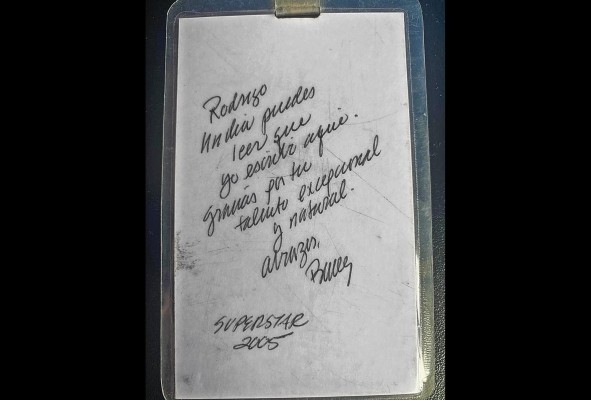 Rodrigo
Un dia puedes
leer que
yo escribi aqui.
Gracias por tu
talento excepcional
y natural.
abrazos,
SUPERSTAR
2005